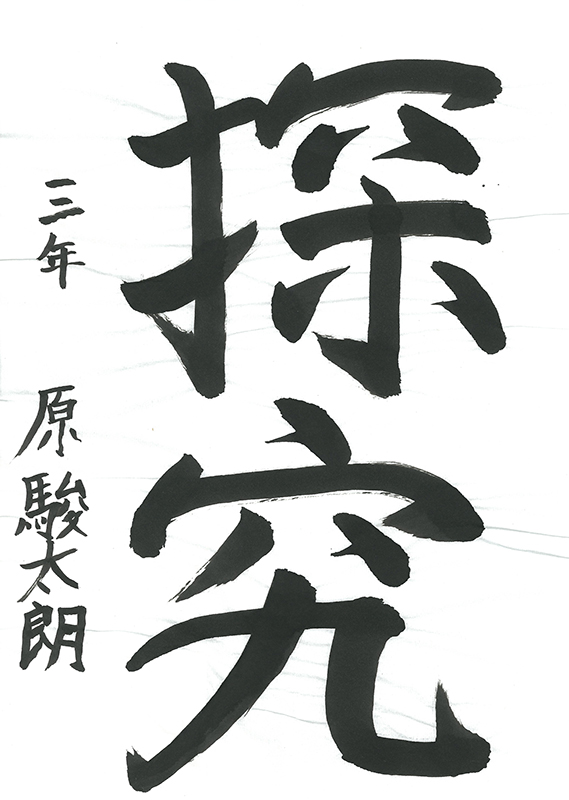 探究
三年 原駿太朗